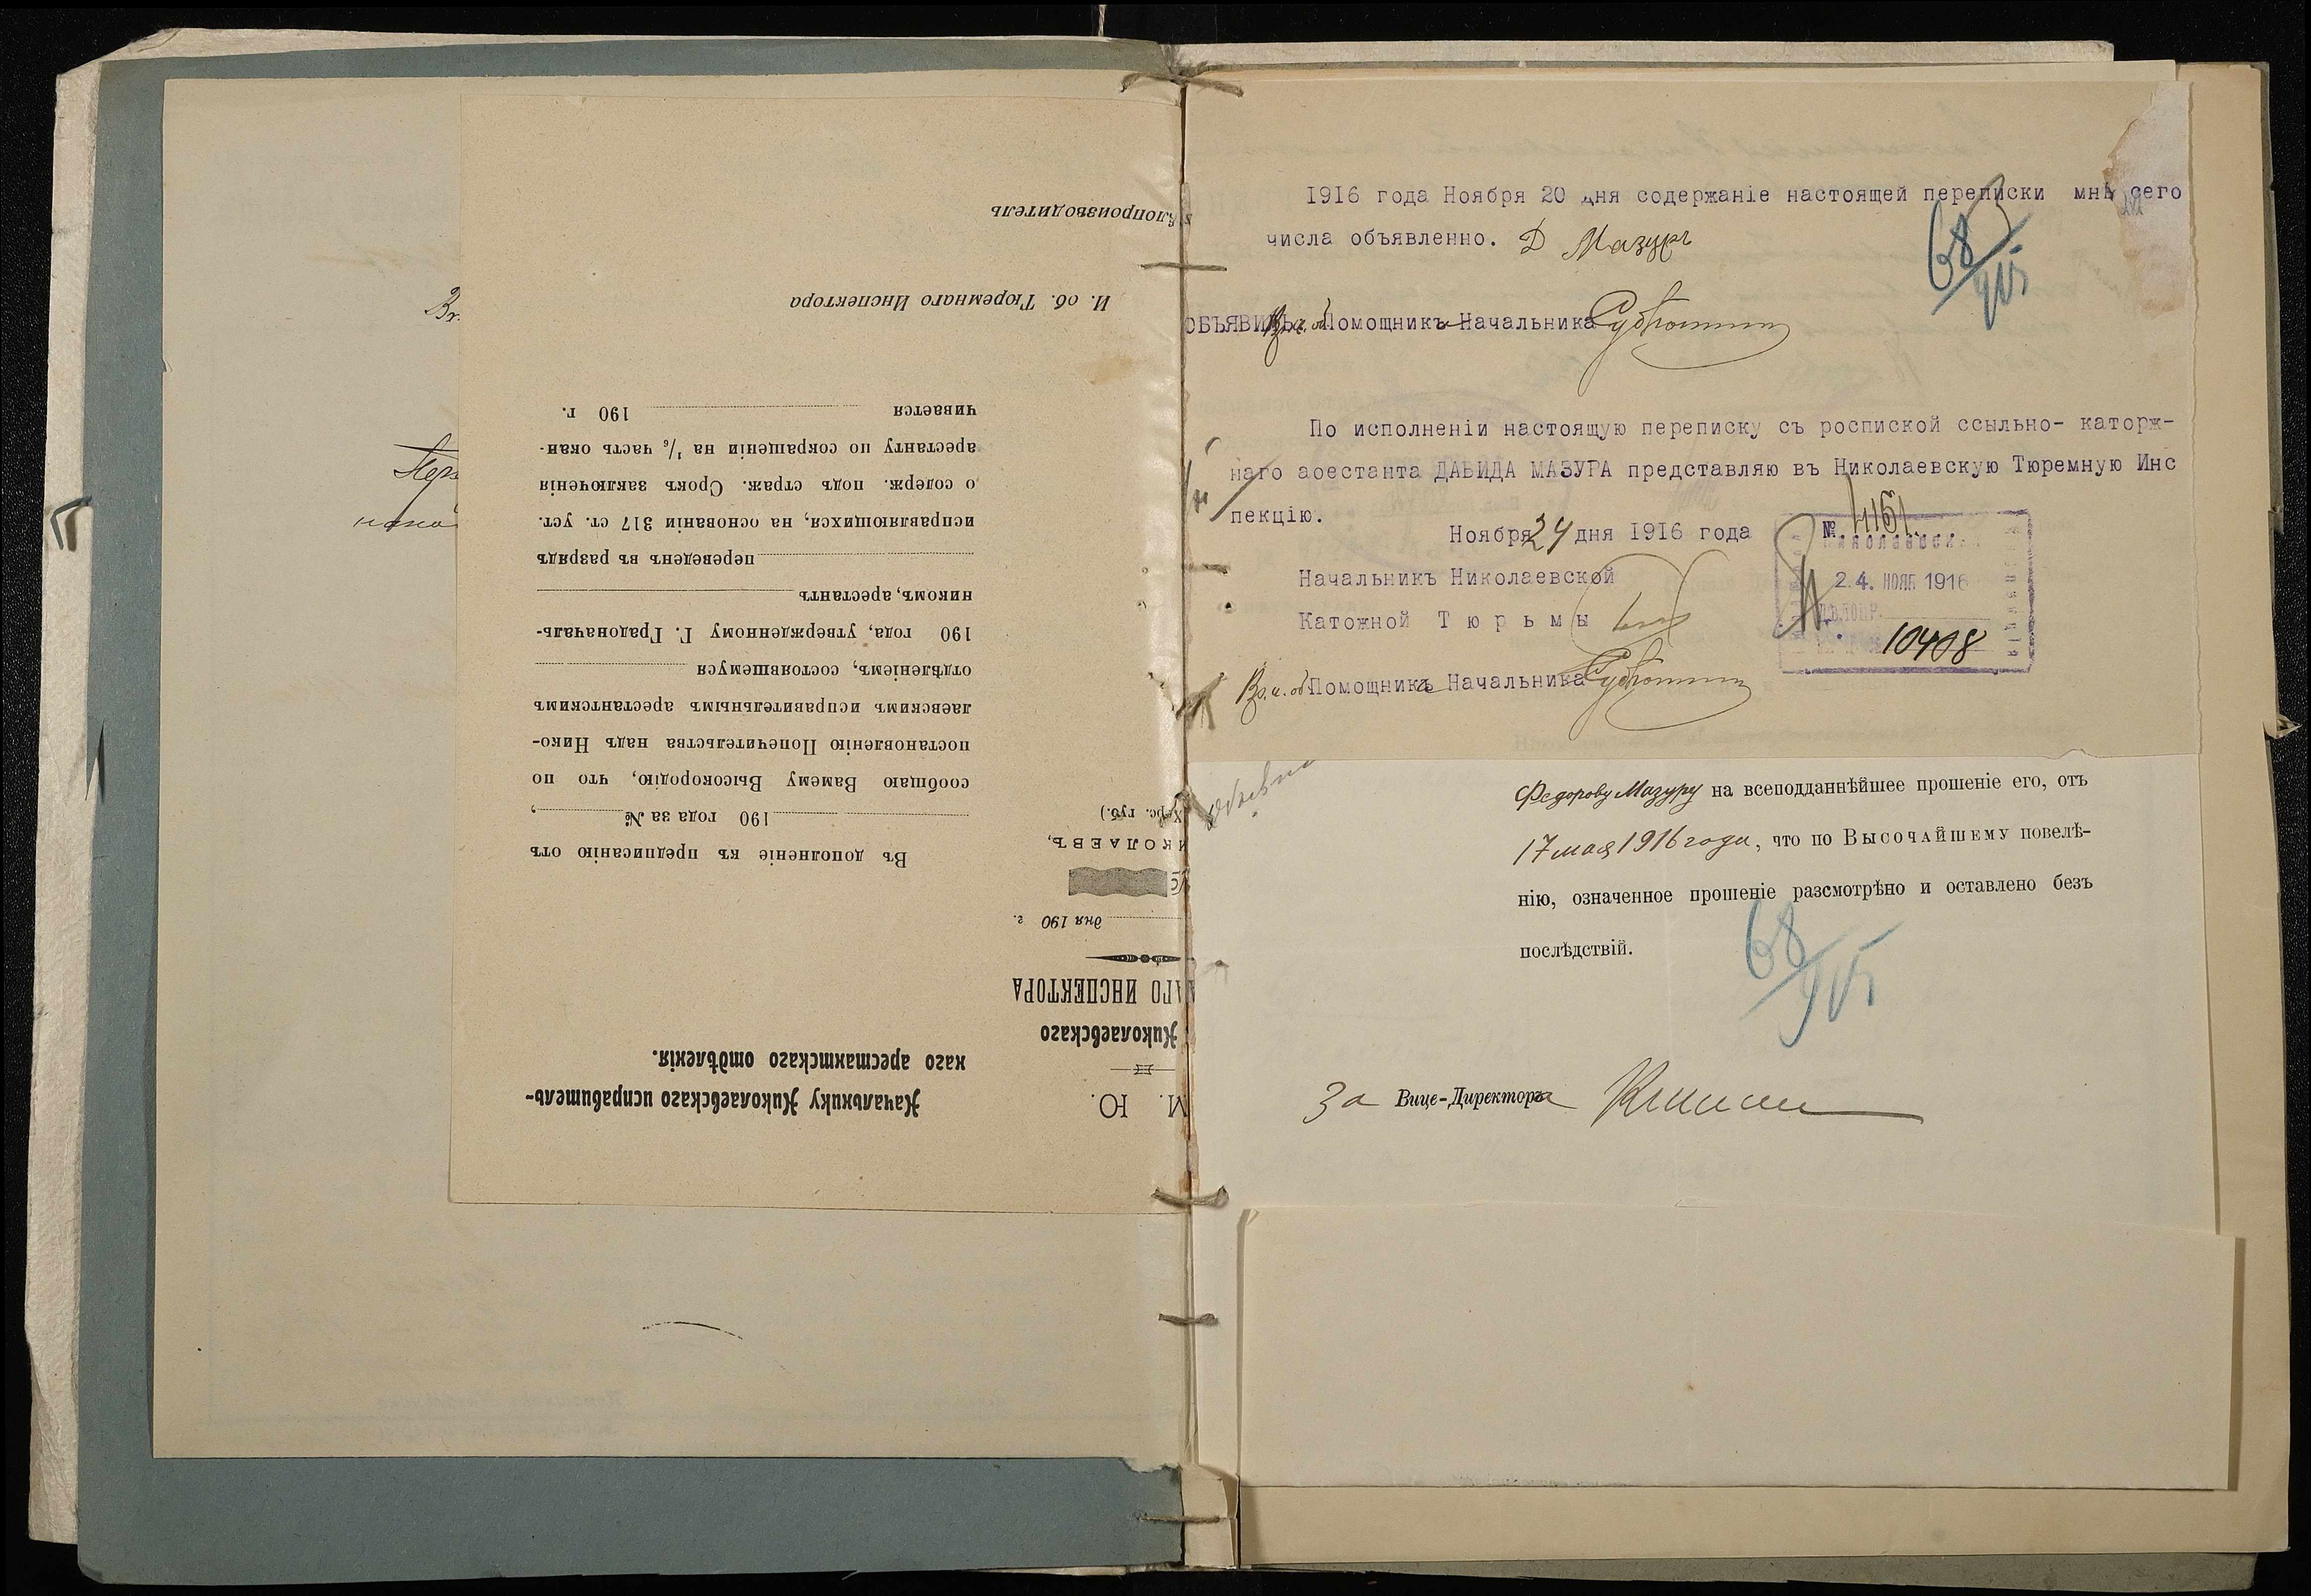 М. Ю.
Николаевскаго
АГО ИНСПЕКТОРА
дня 190 г.
ИКОЛАЕВЪ,
Херс. губ.)
Начальнику Николаевскаго исправитель-
наго арестантскаго отдѣленія.
Въ дополненіе къ предписанію отъ
190 года за №
сообщаю Вашему Высокородію, что по
постановленію Попечительства надъ Нико-
лаевскимъ исправительнымъ арестантскимъ
отдѣленіемъ, состоявшемуся
190 года, утвержденному Г. Градоначаль-
никомъ, арестантъ
переведенъ въ разрядъ
исправляющихся, на основаніи 317 ст. уст.
о содерж. подъ страж. Срокъ заключенія
арестанту по сокращеніи на 1/6 часть окан-
чивается 190 г.
И. об. Тюремнаго Инспектора
лопроизводитель
1916 года Ноября 20 дня содержаніе настоящей переписки мнѣ сего
числа объявленно. Д Мазуръ
68
ОБЪЯВИЛЪ: Помощникъ Начальника
По исполненіи настоящую переписку съ роспиской ссыльно- каторж-
наго аоестанта ДАВИДА МАЗУРА представляю въ Николаевскую Тюремную Инс
пекцію.
Ноября 24 дня 1916 года
№ 4161
24. НОЯБ 1916
10408
Начальникъ Николаевской
Катожной Тюрьмы
Вр. и. об. Помощника Начальника
Федорову Мазуру на всеподданнѣйшее прошеніе его, отъ
17 мая 1916 года, что по Высочайшему повелѣ-
нію, означенное прошеніе разсмотрѣно и оставлено безъ
послѣдствій.
68
За Вице-Директора